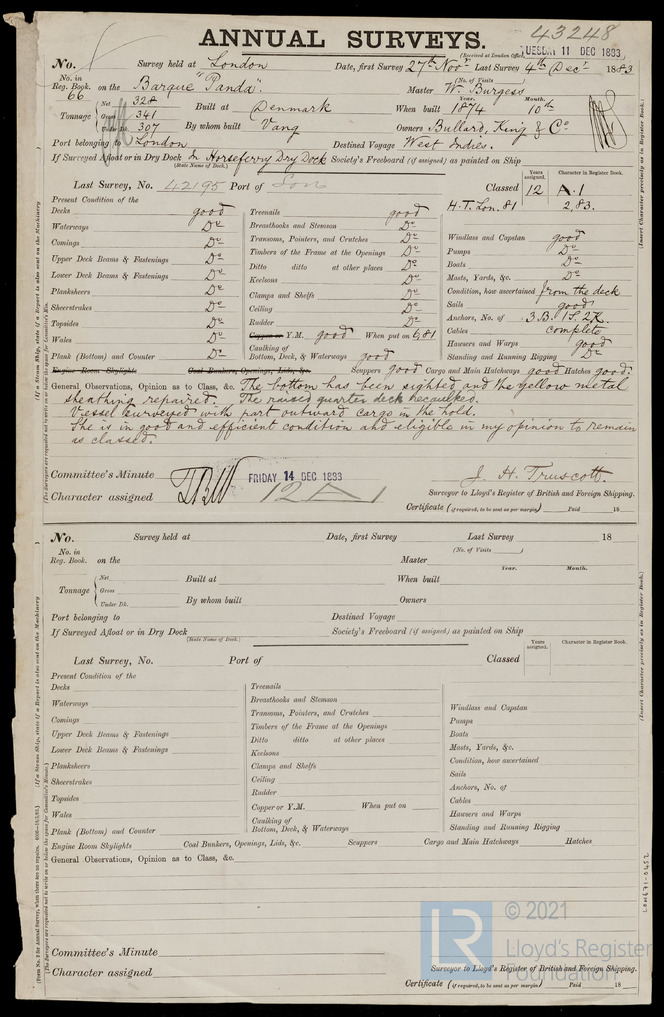 43248
ANNUAL SURVEYS.
(Received at London Office,
TUESDAY 11 DEC 1883
No. Survey held at London Date, first Survey 27th Novr Last Survey 4th Decr 1883
(No. of Visits )
No. in Reg. Book. 66 on the Barque "Panda". Master W. Burgess
Tonnage Net 328 Gross 341 Under Dk. 307
Built at Denmark When built Year. 1874 Month. 10th
By whom built Vang Owners Bullard, King & Co
Port belonging to London Destined Voyage West Indies.
If Surveyed Afloat or in Dry Dock In Horseferry Dry Dock Society's Freeboard (if assigned) as painted on Ship
(State Name of Dock.)
Last Survey, No. 42195 Port of Lon Classed Years assigned. 12 Character in Register Book. A.1
H.T. Lon. 81 2,83.
Present Condition of the
Decks good Treenails good
Waterways Do Breasthooks and Stemson Do
Comings Do Transoms, Pointers, and Crutches Do Windlass and Capstan good
Upper Deck Beams & Fastenings Do Timbers of the Frame at the Openings Do Pumps Do
Lower Deck Beams & Fastenings Do Ditto ditto at other places Do Boats Do
Planksheers Do Keelsons Do Masts, Yards, &c. Do
Sheerstrakes Do Clamps and Shelfs Do Condition, how ascertained from the deck
Topsides Do Ceiling Do Sails good
Wales Do Rudder Do Anchors, No. of 3.B. 1.S. 2.K.
Copper or Y.M. good When put on 6,81 Cables complete
Plank (Bottom) and Counter Do Caulking of Bottom, Deck, & Waterways good Hawsers and Warps good
Standing and Running Rigging Do
Engine Room Skylights Coal Bunkers, Openings, Lids, &c. Scuppers good Cargo and Main Hatchways good Hatches good.
General Observations, Opinion as to Class, &c. The bottom has been sighted and the yellow metal
sheathing repaired. The raised quarter deck recaulked.
Vessel surveyed with part outward cargo in the hold.
She is in good and efficient condition and eligible in my opinion to remain
as classed.
Committee's Minute FRIDAY 14 DEC 1883 J. H. Truscott.
Character assigned 12 A 1 Surveyor to Lloyd's Register of British and Foreign Shipping.
Certificate (if required, to be sent as per margin) Paid 18
No. Survey held at Date, first Survey Last Survey 18
(No. of Visits )
No. in Reg. Book. on the Master
Year. Month.
Tonnage Net Gross Under Dk.
Built at When built
By whom built Owners
Port belonging to Destined Voyage
If Surveyed Afloat or in Dry Dock Society's Freeboard (if assigned) as painted on Ship
(State Name of Dock.)
Last Survey, No. Port of Classed Years assigned. Character in Register Book.
Present Condition of the
Decks Treenails
Waterways Breasthooks and Stemson
Comings Transoms, Pointers, and Crutches Windlass and Capstan
Upper Deck Beams & Fastenings Timbers of the Frame at the Openings Pumps
Lower Deck Beams & Fastenings Ditto ditto at other places Boats
Planksheers Keelsons Masts, Yards, &c.
Sheerstrakes Clamps and Shelfs Condition, how ascertained
Topsides Ceiling Sails
Wales Rudder Anchors, No. of
Copper or Y.M. When put on Cables
Plank (Bottom) and Counter Caulking of Bottom, Deck, & Waterways Hawsers and Warps
Standing and Running Rigging
Engine Room Skylights Coal Bunkers, Openings, Lids, &c. Scuppers Cargo and Main Hatchways Hatches
General Observations, Opinion as to Class, &c.
Committee's Minute
Character assigned Surveyor to Lloyd's Register of British and Foreign Shipping.
Certificate (if required, to be sent as per margin) Paid 18
(Insert Character precisely as in Register Book.)
(Insert Character precisely as in Register Book.)
LON671-0452
LR
© 2021
Lloyd's Register
Foundation